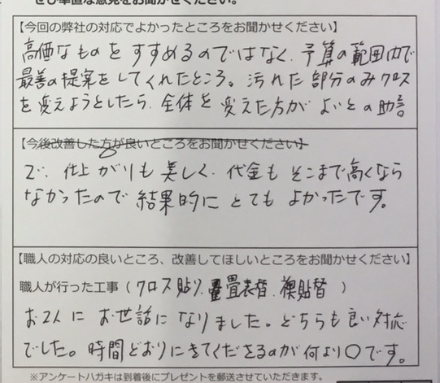 ぜひ率直な意見をお聞かせください。
【今回の弊社の対応でよかったところをお聞かせください】
高価なものをすすめるのではなく、予算の範囲内で
最善の提案をしてくれたところ。汚れた部分のみクロス
を変えようとしたら、全体を変えた方がよいとの助言
【今後改善した方が良いところをお聞かせください】
で、仕上がりも美しく、代金もそこまで高くなら
なかったので結果的にとてもよかったです。
【職人の対応の良いところ、改善してほしいところをお聞かせください】
職人が行った工事(クロス貼り、畳表替、襖貼替)
お2人にお世話になりました。どちらも良い対応
でした。時間どおりにきてくださるのが何より○です。
※アンケートハガキは到着後にプレゼントを郵送させていただきます。